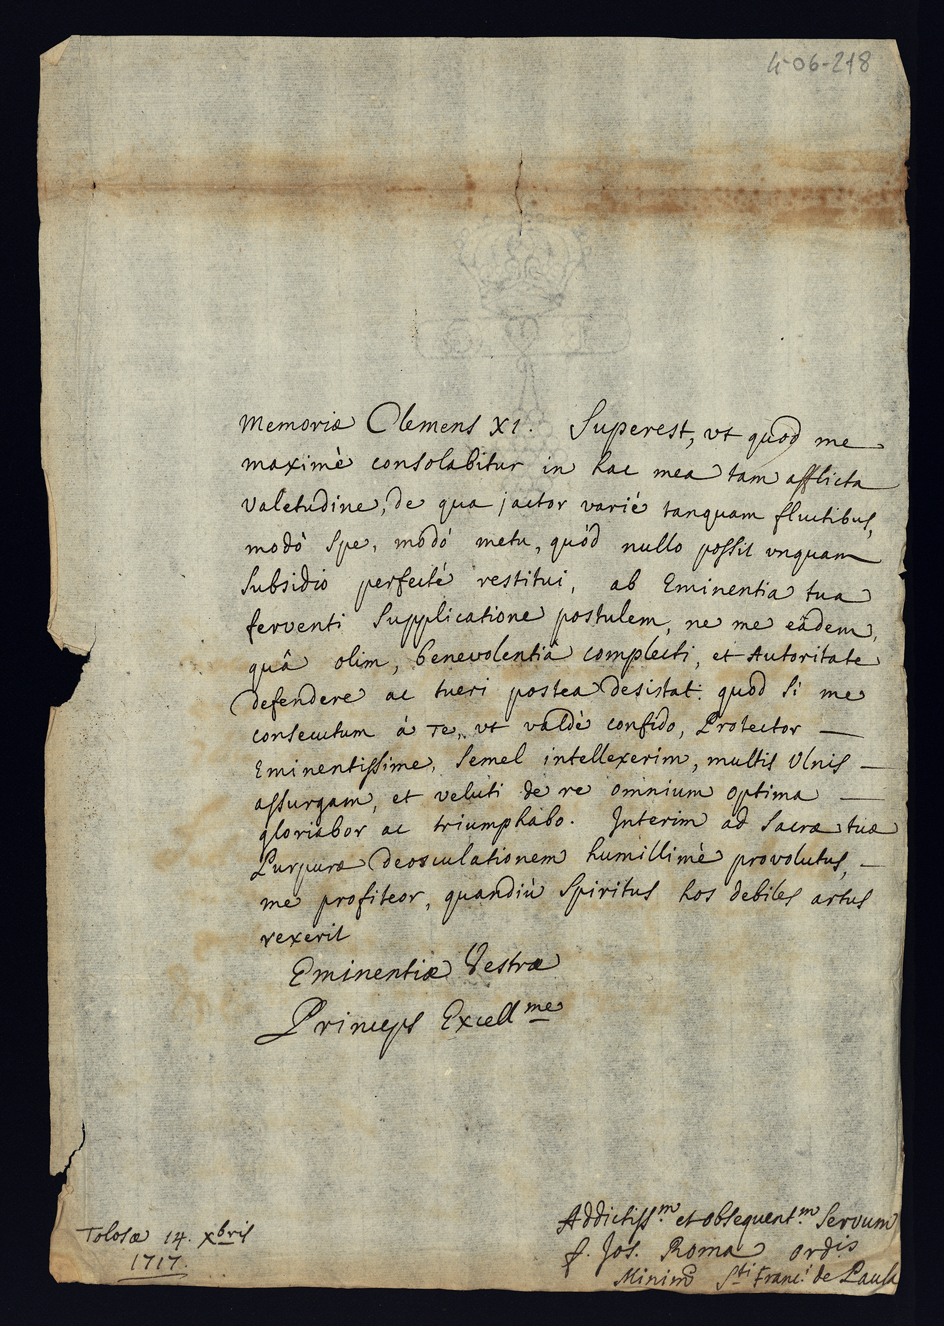 4-06-218
memoriæ Clemens XI. Superest, vt quod me
maximè consolabitur in hac mea tam afflicta
valetudine, de qua jactor variè tanquam fluctibus,
modò spe, modò metu, quód nullo possit vnquam
subsidio perfectè restitui, ab Eminentia tua
ferventi supplicatione postulem, ne me eâdem,
quâ olim, benevolentiâ complecti, et Autoritate
defendere ac tueri postea desistat. quod si me
consecutum á Te, vt valdè confido, Protector —
Eminentissime, semel intellexerim, multis Vlnis —
assurgam, et veluti de re omnium optima —
gloriabor ac triumphabo. Interim ad Sacræ tuæ
Purpuræ deosculationem humillimè provolutus, —
me profiteor, quandiù Spiritus hos debiles artus
rexerit
Eminentiæ Vestræ
Princeps Excell.me
Addictiss.m et obsequent.m Servum
Tolosæ 14. Xbris
f. Jos. Roma ordis
1717.
Minimo Sti Franc.i de Paula